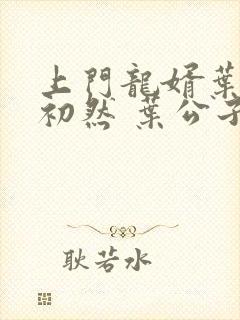 上門龍婿葉
初然 葉公子
耿若水